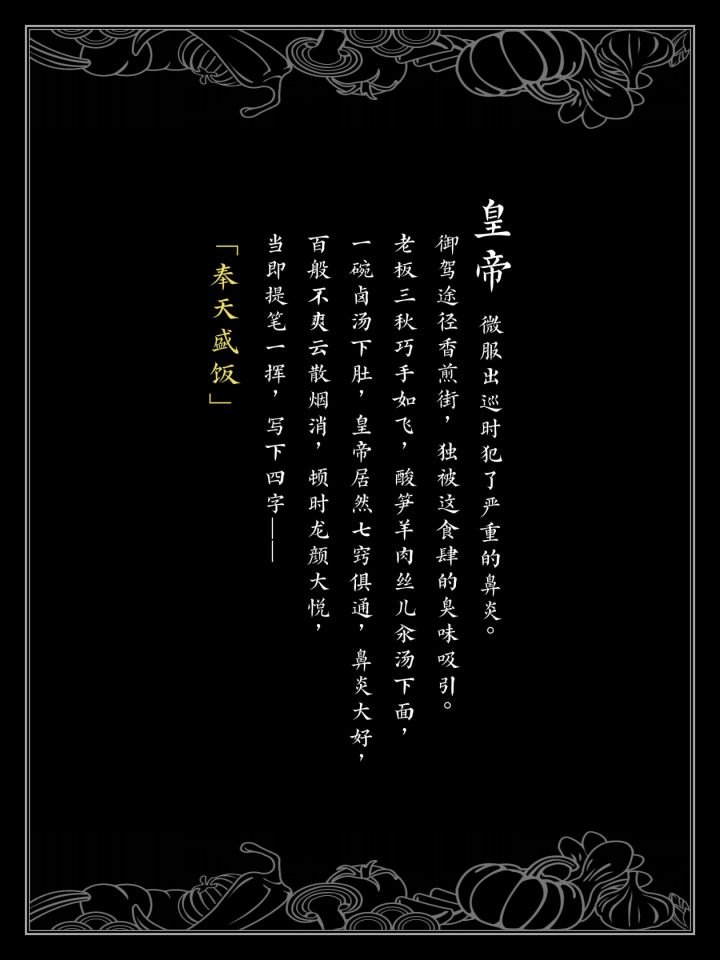 皇帝 微服出巡时犯了严重的鼻炎。
御驾途径香煎街，独被这食肆的臭味吸引。
老板三秋巧手如飞，酸笋羊肉丝儿汆汤下面，
一碗卤汤下肚，皇帝居然七窍俱通，鼻炎大好，
百般不爽云散烟消，顿时龙颜大悦，
当即提笔一挥，写下四字——
「奉天盛饭」